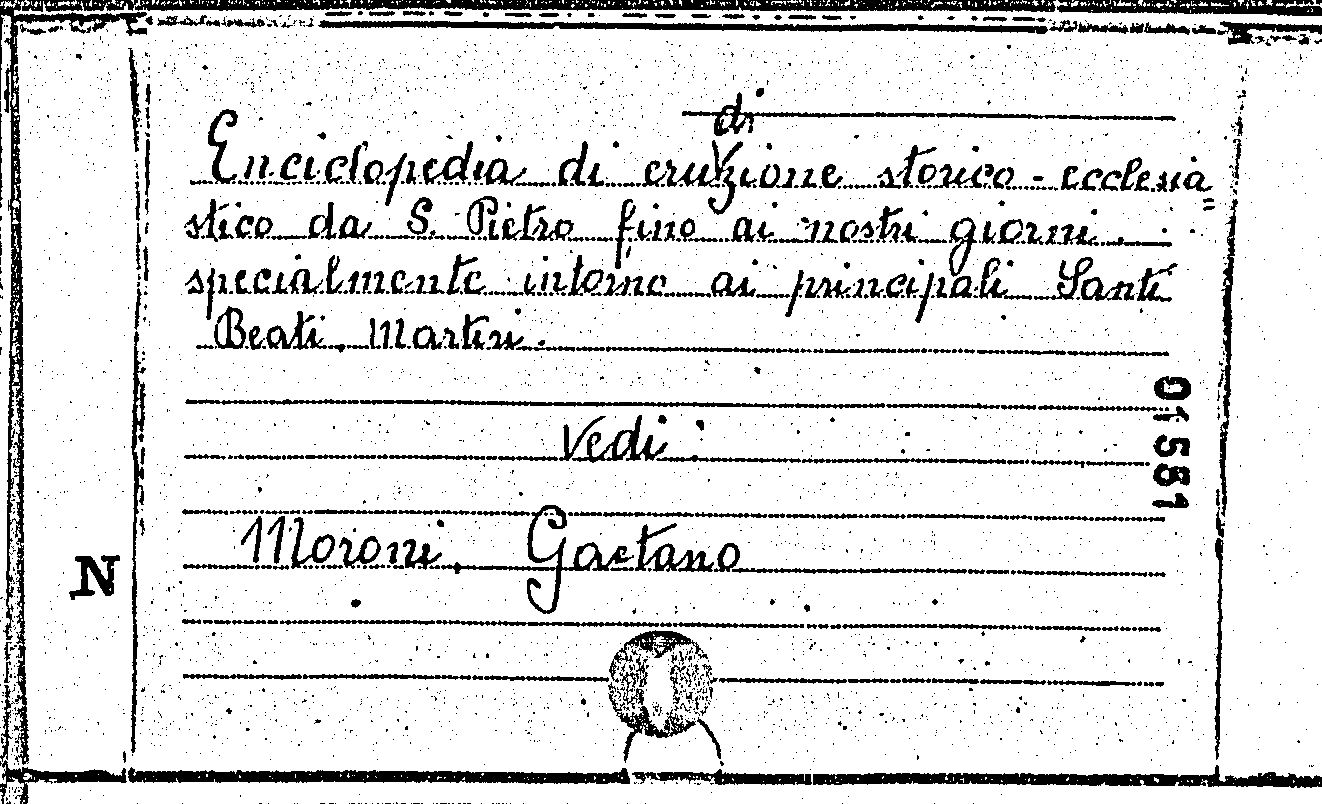 di
Enciclopedia di eruzione storico - ecclesia"
stico da S. Pietro fino ai nostri giorni.
specialmente intorno ai principali Santi
Beati, Martiri.
01551
Vedi:
Moroni, Gaetano
N